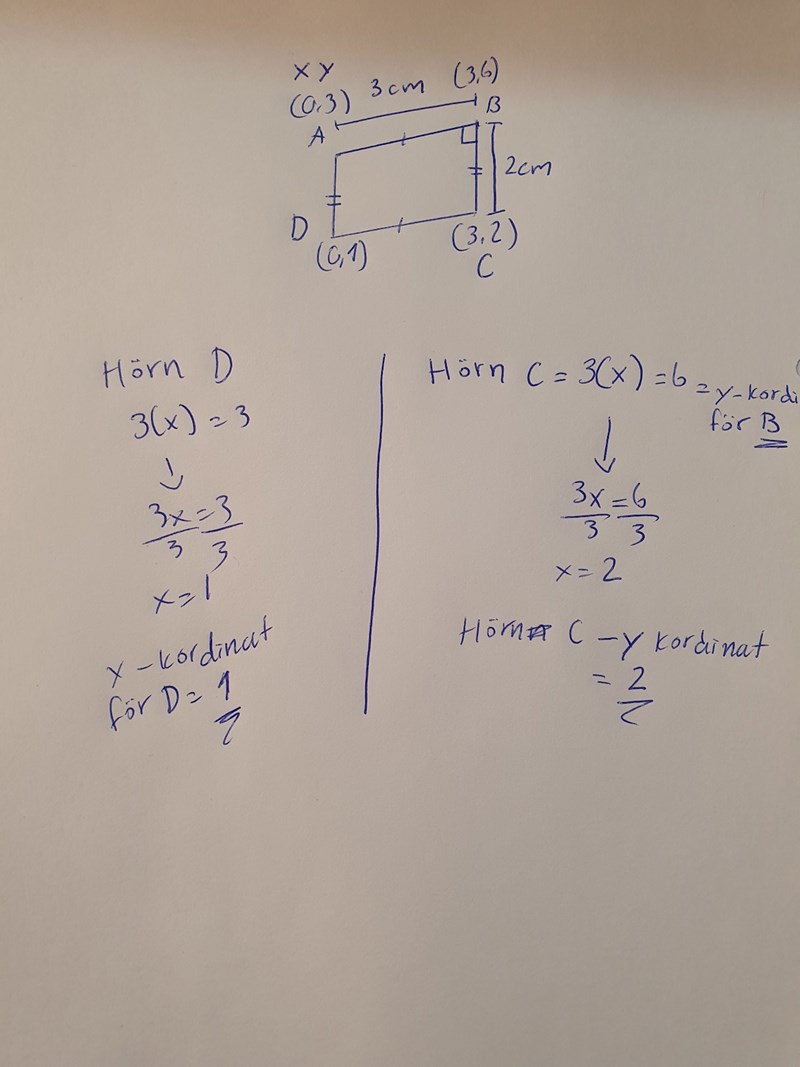 X Y
(0,3) 3cm (3,6)
A B
2cm
D (3,2)
(0,1) C
Hörn D
3(x) = 3
↓
3x = 3
3 3
x = 1
x - kordinat
för D = 1
Hörn C = 3(x) = 6 = y-kordi
för B
↓
3x = 6
3 3
x = 2
Hörn C - y kordinat
= 2